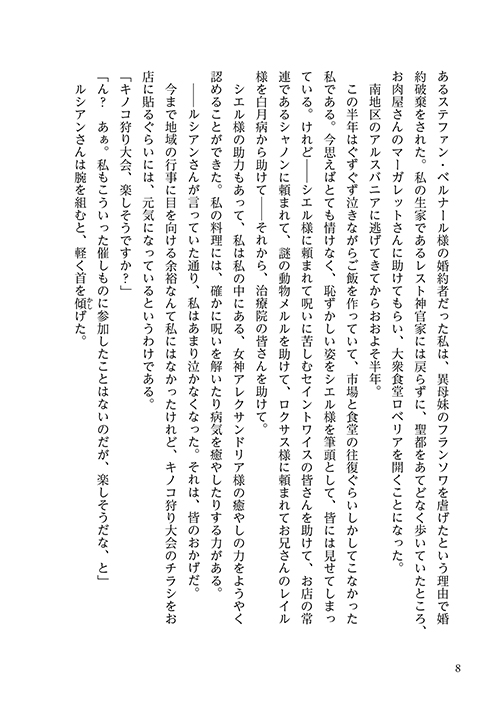 あるステファン・ベルナール様の婚約者だった私は、異母妹のフランソワを虐げたという理由で婚
約破棄をされた。私の生家であるレスト神官家には戻らずに、聖都をあてどなく歩いていたところ、
お肉屋さんのマーガレットさんに助けてもらい、大衆食堂ロベリアを開くことになった。
南地区のアルスバニアに逃げてきてからおおよそ半年。
この半年はぐずぐず泣きながらご飯を作っていて、市場と食堂の往復ぐらいしかしてこなかった
私である。今思えばとても情けなく、恥ずかしい姿をシエル様を筆頭として、皆には見せてしまっ
ている。けれど――シエル様に頼まれて呪いに苦しむセイントワイスの皆さんを助けて、お店の常
連であるシャノンに頼まれて、謎の動物メルルを助けて、ロクサス様に頼まれてお兄さんのレイル
様を白月病から助けて――それから、治療院の皆さんを助けて。
シエル様の助力もあって、私は私の中にある、女神アレクサンドリア様の癒やしの力をようやく
認めることができた。私の料理には、確かに呪いを解いたり病気を癒やしたりする力がある。
――ルシアンさんが言っていた通り、私はあまり泣かなくなった。それは、皆のおかげだ。
今まで地域の行事に目を向ける余裕なんて私にはなかったけれど、キノコ狩り大会のチラシをお
店に貼るぐらいには、元気になっているというわけである。
「キノコ狩り大会、楽しそうですか？」
「ん？　あぁ。私もこういった催しものに参加したことはないのだが、楽しそうだな、と」
ルシアンさんは腕を組むと、軽く首を傾かしげた。
8